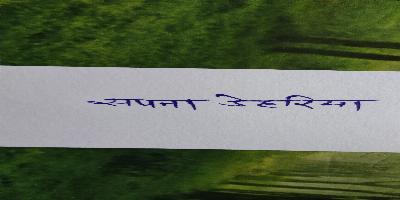 सपना डेहरिया